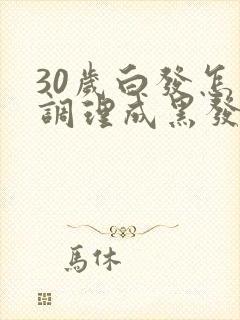 30歲白發怎
調理成黑發
馬休